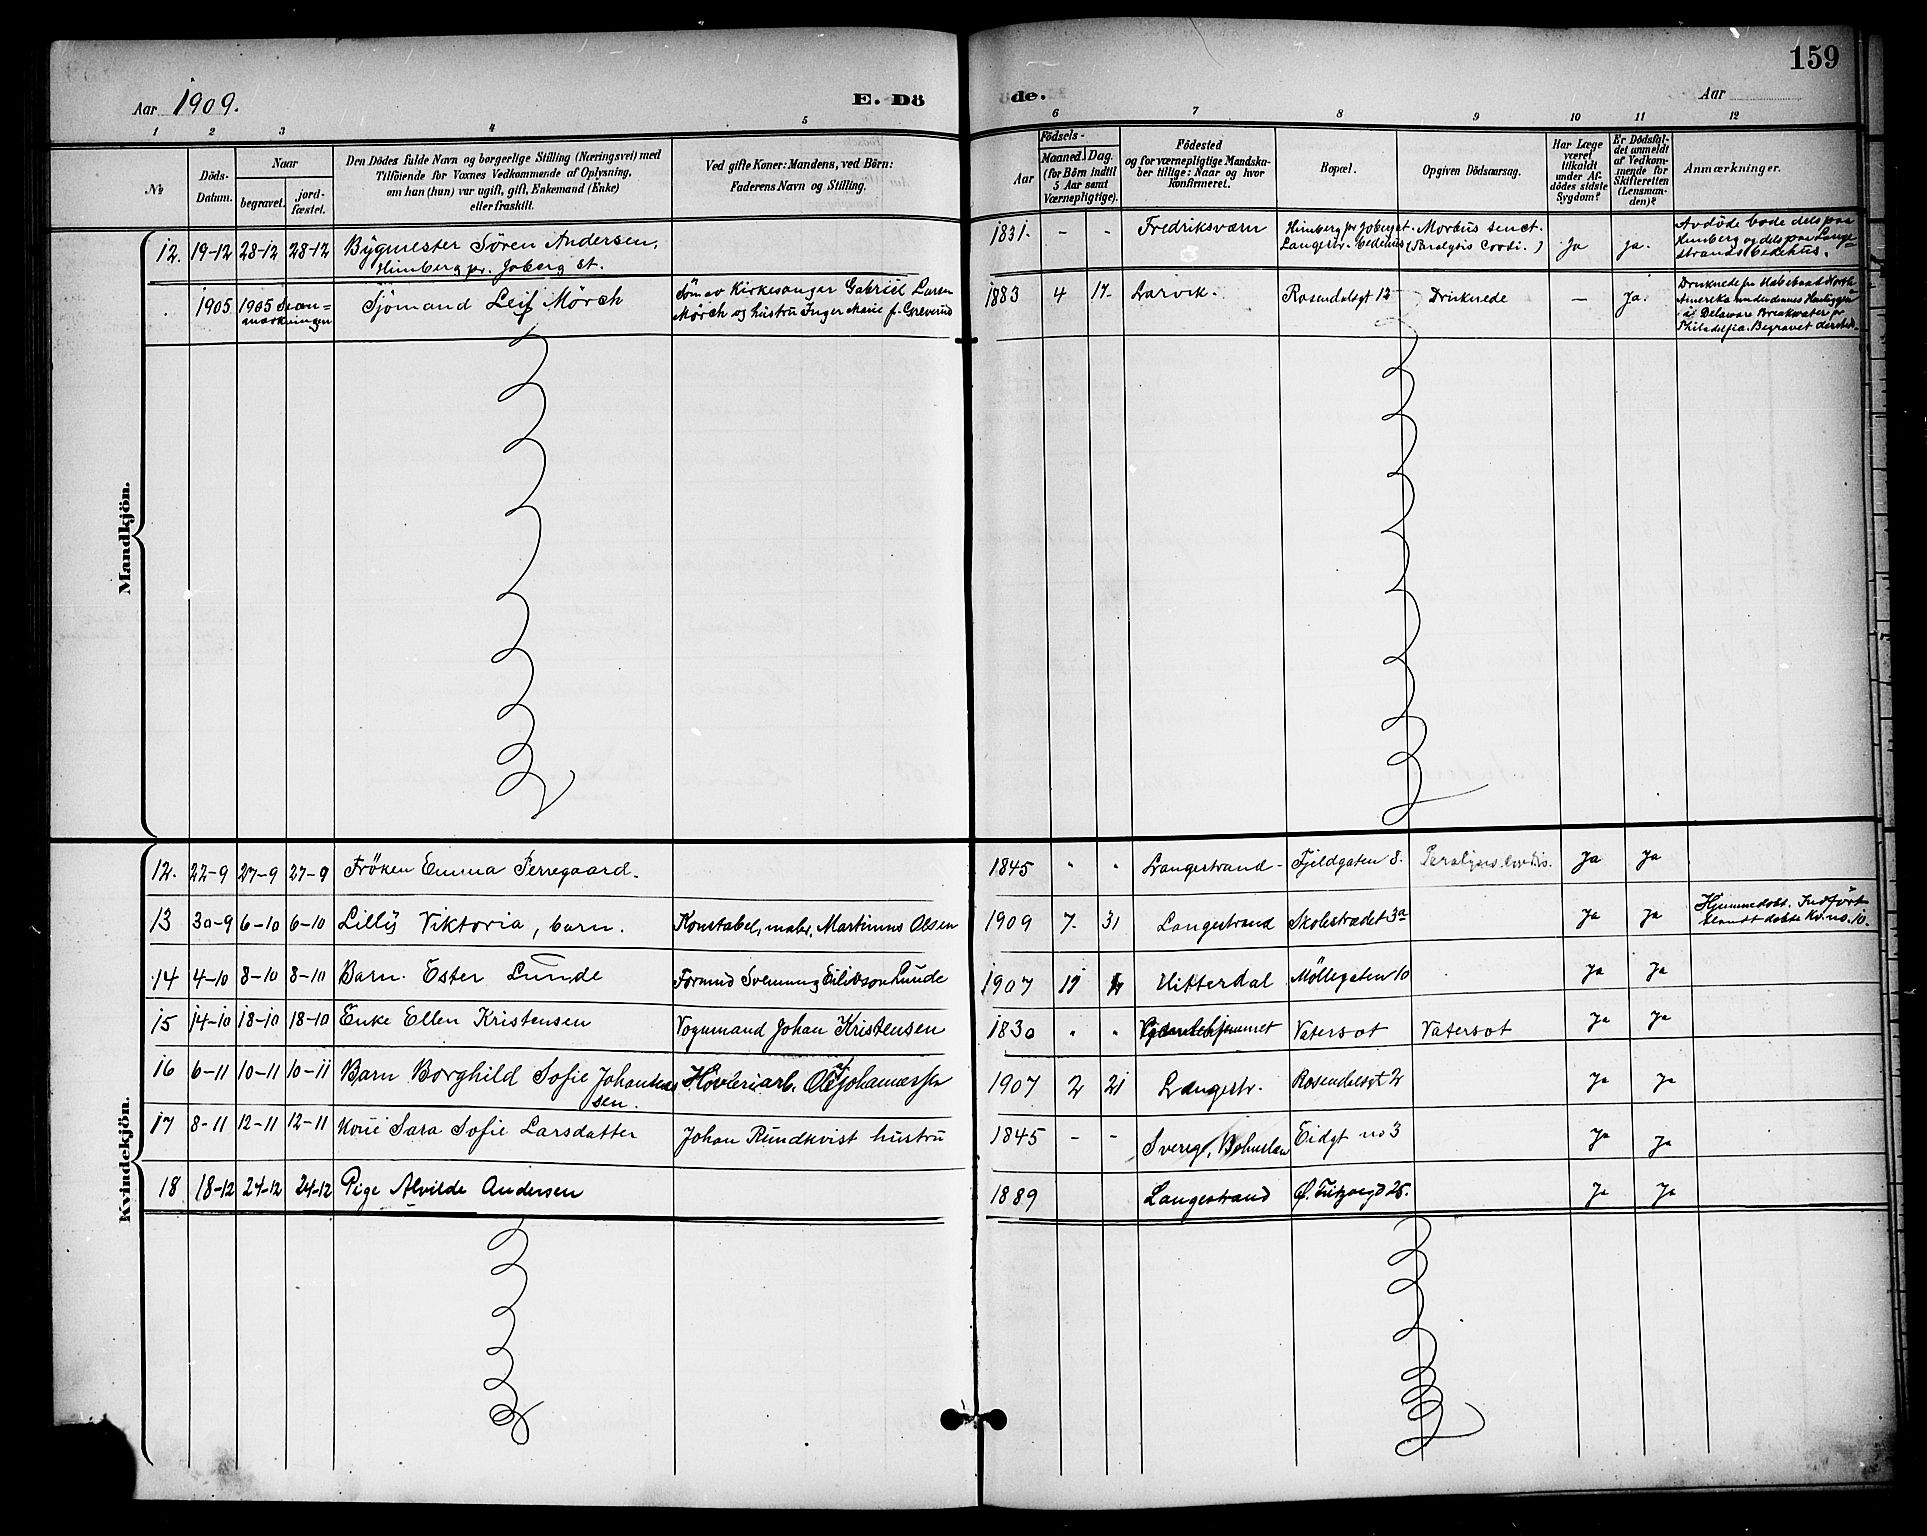 159
Aar 1909.
E. Dö
de.
Aar
1 2 3 4 5
6 7 8 9 10 11 12
No
Döds-Datum.
Naar
begravet.
jord-fæstet.
Den Dödes fulde Navn og borgerlige Stilling (Næringsvei) med
Tilföiende for Voxnes Vedkommende af Oplysning,
om han (hun) var ugift, gift, Enkemand (Enke)
eller fraskilt.
Ved gifte Koner: Mandens, ved Börn:
Faderens Navn og Stilling.
Födsels-
Aar
Maaned. Dag.
(for Börn indtil
5 Aar samt
Værnepligtige).
Födested
og for værnepligtige Mandska-
ber tillige: Naar og hvor
konfirmeret.
Bopæl.
Opgiven Dödsaarsag.
Har Læge
været
tilkaldt
under Af-
dödes sidste
Sygdom?
Er Dödsfal-
det anmeldt
af Vedkom-
mende for
Skifteretten
(Lensman-
den)?
Anmærkninger.
Mandkjön.
12. 19-12 28-12 28-12 Bygmester Sören Andersen,
Himberg pr. Joberg st.
1831. - - Fredriksværn
Himberg pr Joberg st.
Langestr. bedehus
Morbus senct.
(Paralysis Cordi.)
Ja ja.
Avdöde bode dels paa
Himberg og dels paa Lange-
strands bedehus.
1905 1905 Se an-
mærkningen
Sjömand Leif Mörch
Sön av Kirkesanger Gabriel Larsen
Mörch og hustru Inger Marie f. Greverud
1883 4 17 Larvik. Rosendalsgt 12 Druknede - Ja.
Druknede fra
Amerika
i Delaware Breakwater pr
Philadelfia. Begravet dersteds.
Kvindekjön.
12. 22-9 27-9 27-9 Fröken Emma Perregaard.
1845 " " Langestrand - Fjeldgaten 8. Paralysis cordis. Ja Ja
13 30-9 6-10 6-10 Lilly Viktoria, barn. Konstabel, maler, Martinius Olsen
1909 7. 31 Langestrand Skolestrædet 3a Ja Ja
Hjemmedöbt. Indfört
blandt döbte Kv. no. 10.
14 4-10 8-10 8-10 Barn. Ester Lunde Formid Svennung Eilivson Lunde
1907 11 Hitterdal Möllegaten 10 Ja Ja
15 14-10 18-10 18-10 Enke Ellen Kristensen Vognmand Johan Kristensen
1830 " " Vatersot Vatersot Ja Ja
16 6-11 10-11 10-11 Barn Borghild Sofie Johannes
sen.
Hövleriarb. Ole Johannessen
1907 2 21 Langestr. Rosendalsgt 2 Ja Ja
17 8-11 12-11 12-11 Kone Sara Sofie Larsdatter Johan Rundkvist hustru
1845 - - Sverige, Bohuslen Eidgt no 3 Ja Ja
18 18-12 24-12 24-12 Pige Alvilde Andersen
1889 Langestrand Ö. Fritzoegd 25. Ja Ja